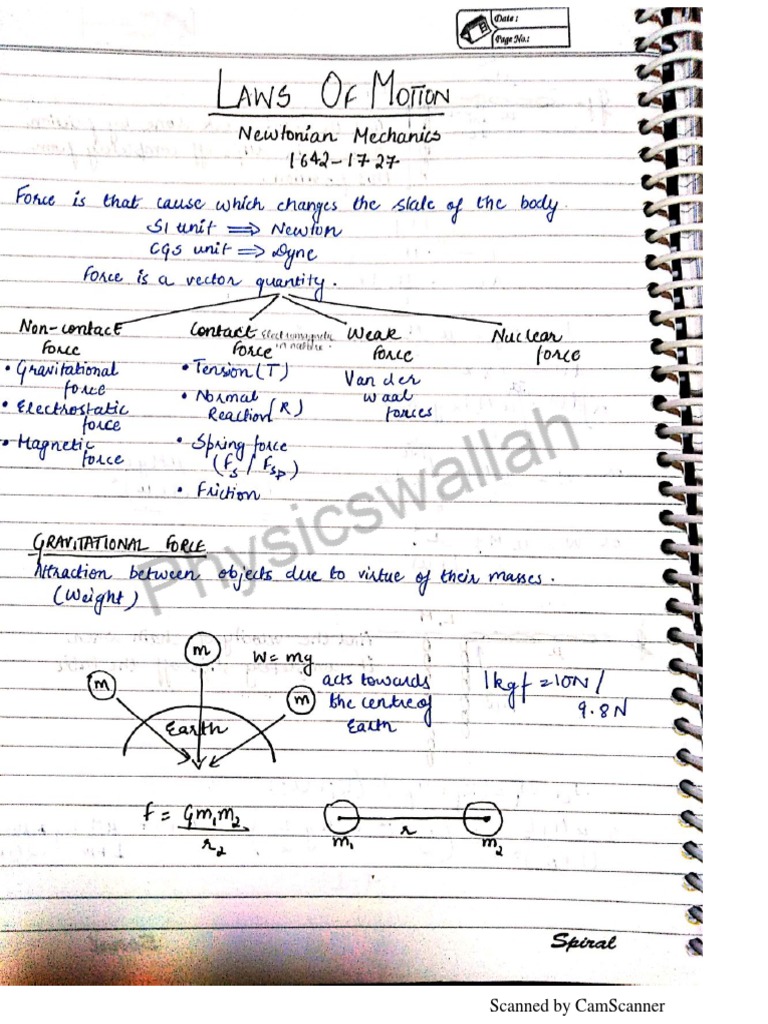 Date:
Page No.:
LAWS OF MOTION
Newtonian Mechanics
1642-1727
Force is that cause which changes the state of the body.
SI unit ⟹ Newton
CGS unit ⟹ Dyne
Force is a vector quantity.
Non-contact Force
• Gravitational force
• Electrostatic force
• Magnetic force
Contact Force
Electromagnetic in nature.
• Tension (T)
• Normal Reaction (R)
• Spring force
(Fs / Fsp)
• Friction
Weak Force
Van der
waal
forces
Nuclear force
Physicswallah
GRAVITATIONAL FORCE
Attraction between objects due to virtue of their masses.
(Weight)
m
m
m
W = mg
acts towards
the centre of
Earth
1 kgf = 10N /
9.8N
Earth
F = Gm₁m₂
r₂
r
m₁
m₂
Spiral
Scanned by CamScanner